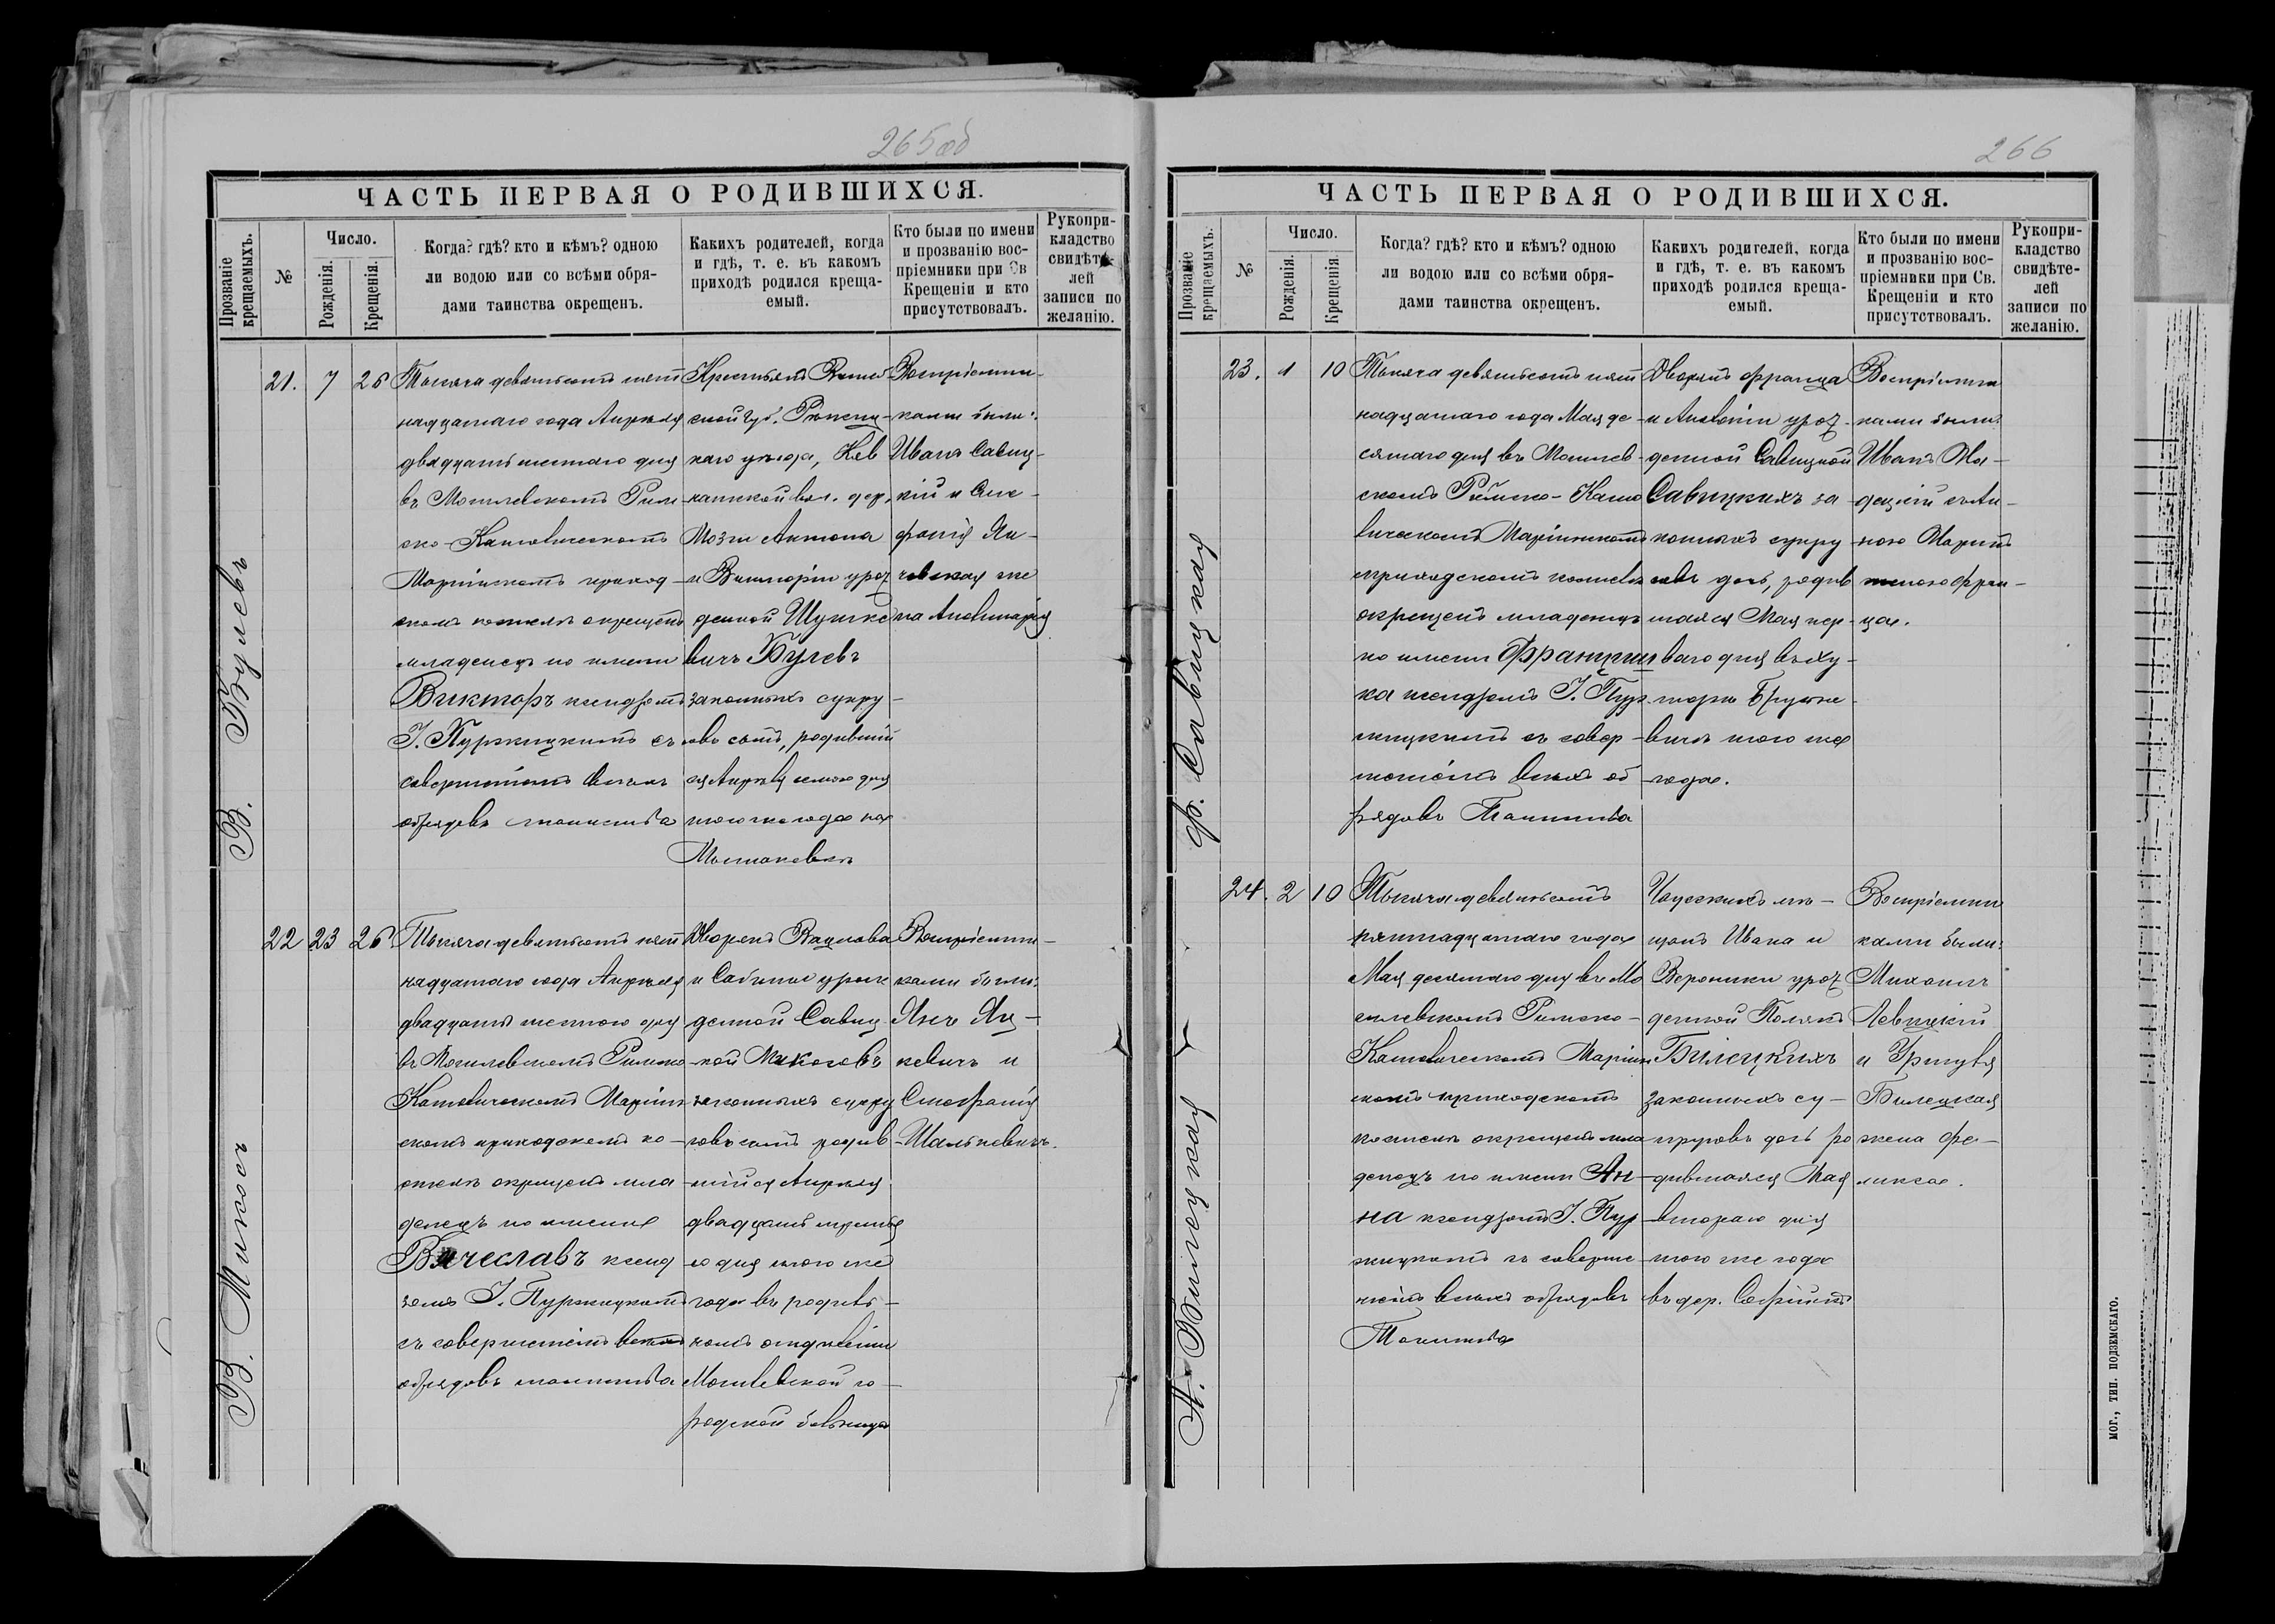 265 об
ЧАСТЬ ПЕРВАЯ О РОДИВШИХСЯ.
Прозваніе крещаемыхъ.
№
Число.
Рожденія.
Крещенія.
Когда? гдѣ? кто и кѣмъ? одною
ли водою или со всѣми обря-
дами таинства окрещенъ.
Какихъ родителей, когда
и гдѣ, т. е. въ какомъ
приходѣ родился креща-
емый.
Кто были по имени
и прозванію вос-
пріемники при Св
Крещеніи и кто
присутствовалъ.
Рукопри-
кладство
свидѣте-
лей
записи по
желанію.
В. Булевъ
21. 7 26
Тысяча девятьсотъ пят
надцатаго года Апрѣля
двадцать шестаго дня
въ Могилевскомъ Рим
ско-Католическомъ
Маріинскомъ приход
скомъ костелѣ окрещенъ
младенецъ по имени
Викторъ ксендзомъ
І. Пуржицкимъ съ
совершеніемъ всѣхъ
обрядовъ таинства
Крестьянъ Витеб
ской губ. Рѣжиц-
каго уѣзда,
вол. дер.
Мозги Антона
и Викторіи урож
денной Шушке
вичъ Булевъ
законныхъ супру-
говъ сынъ, родившій
ся Апрѣля седьмого дня
того же года на
Воспріемни-
ками были:
Иванъ Савиц-
кій и Сте-
фанія Ян-
чевская же
на Аполинарія
В. Микосъ
22 23 26
Тысяча девятьсотъ пят
надцатаго года Апрѣля
двадцать шестого дня
въ Могилевскомъ Римско
Католическомъ Маріин
скомъ приходскомъ ко-
стелѣ окрещенъ мла
денецъ по имени
Вячеславъ ксенд
зомъ І. Пуржицкимъ
съ совершеніемъ всѣхъ
обрядовъ таинства
Дворянъ Вацлава
и Сабины урож
денной Савиц-
кой Микосовъ
законныхъ супру
говъ сынъ родив-
шійся Апрѣля
двадцать третья
го дня того же
года въ родиль-
номъ отдѣленіи
Могилевской го-
родской больницы
Воспріемни-
ками были:
Янъ Яц-
кевичъ и
Стефанія
Шалькевичъ.
266
ЧАСТЬ ПЕРВАЯ О РОДИВШИХСЯ.
Прозваніе крещаемыхъ.
№
Число.
Рожденія.
Крещенія.
Когда? гдѣ? кто и кѣмъ? одною
ли водою или со всѣми обря-
дами таинства окрещенъ.
Какихъ родителей, когда
и гдѣ, т. е. въ какомъ
приходѣ родился креща-
емый.
Кто были по имени
и прозванію вос-
пріемники при Св.
Крещеніи и кто
присутствовалъ.
Рукопри-
кладство
свидѣте-
лей
записи по
желанію.
Ф. Савицкая
23. 1 10
Тысяча девятьсотъ пят
надцатаго года Мая де-
сятаго дня въ Могилев-
скомъ Римско-Като
лическомъ Маріинскомъ
приходскомъ костелѣ
окрещенъ младенецъ
по имени Францин
ка ксендзомъ І. Пур
жицкимъ съ совер-
шеніемъ всѣхъ об
рядовъ Таинства
Дворянъ Франца
и Антоніи урож
денной Савицкой
Савицкихъ за
конныхъ супру
говъ дочь, родив
шаяся Мая пер-
ваго дня въ ху-
торѣ
того же
года.
Воспріемни
ками были:
Иванъ
съ Ан-
ною Марія
женою Фран-
ца.
А. Билецкая
24. 2 10
Тысяча девятьсотъ
пятнадцатаго года
Мая десятаго дня въ Мо
гилевскомъ Римско-
Католическомъ Маріин
скомъ приходскомъ
костелѣ окрещенъ мла
денецъ по имени Ан-
на ксендзомъ І. Пур
жицкимъ съ соверше
ніемъ всѣхъ обрядовъ
Таинства
Чаусскихъ мѣ-
щанъ Ивана и
Вероники урож
денной Полякъ
Билецкихъ
законныхъ су-
пруговъ дочь ро
дившаяся Мая
второго дня
того же года
въ дер. Софіинкѣ
Воспріемни
ками были:
Михаилъ
Левицкій
и
Билецкая
жена Фе-
ликса.
МОГ., ТИП. ПОДЗЕМСКАГО.